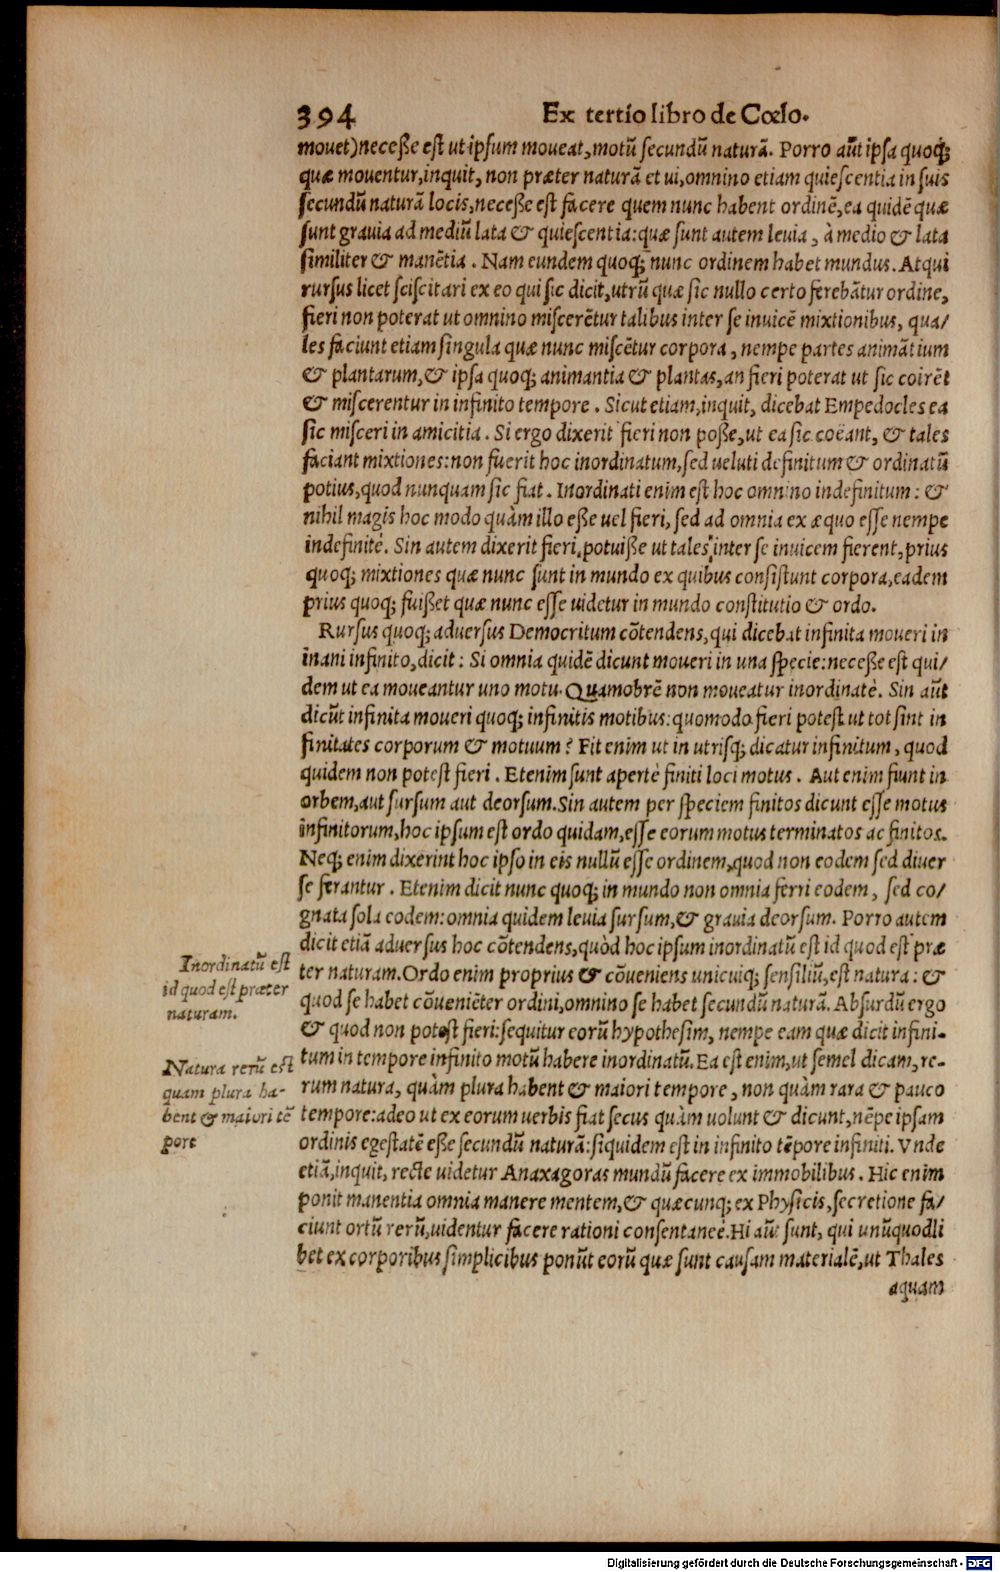 394 Ex tertio libro de Cœlo.
mouet) neceße est ut ipsum moueat, motũ secundũ naturã. Porro aũt ipsa quoq;
quæ mouentur, inquit, non præter naturã et ui, omnino etiam quiescentia in suis
secundũ naturã locis, neceße est facere quem nunc habent ordinẽ, ea quidẽ quæ
sunt grauia ad mediũ lata & quiescentia: quæ sunt autem leuia, à medio & lata
similiter & manẽtia. Nam eundem quoq; nunc ordinem habet mundus. Atqui
rursus licet sciscitari ex eo qui sic dicit, utrũ quæ sic nullo certo ferebãtur ordine,
fieri non poterat ut omnino miscerẽtur talibus inter se inuicẽ mixtionibus, qua/
les faciunt etiam singula quæ nunc miscẽtur corpora, nempe partes animãtium
& plantarum, & ipsa quoq; animantia & plantas, an fieri poterat ut sic coirẽt
& miscerentur in infinito tempore. Sicut etiam, inquit, dicebat Empedocles ea
sic misceri in amicitia. Si ergo dixerit fieri non poße, ut ea sic coëant, & tales
faciant mixtiones: non fuerit hoc inordinatum, sed ueluti definitum & ordinatũ
potius, quod nunquam sic fiat. Inordinati enim est hoc omnino indefinitum: &
nihil magis hoc modo quàm illo eße uel fieri, sed ad omnia ex æquo esse nempe
indefinitè. Sin autem dixerit fieri potuiße ut tales inter se inuicem fierent, prius
quoq; mixtiones quæ nunc sunt in mundo ex quibus consistunt corpora, eadem
prius quoq; fuißet quæ nunc esse uidetur in mundo constitutio & ordo.
Rursus quoq; aduersus Democritum cõtendens, qui dicebat infinita moueri in
inani infinito, dicit: Si omnia quidẽ dicunt moueri in una specie: neceße est qui/
dem ut ea moueantur uno motu. Quamobrẽ non moueatur inordinatè. Sin aũt
dicũt infinita moueri quoq; infinitis motibus: quomodo fieri potest ut tot sint in
finitates corporum & motuum? Fit enim ut in utrisq; dicatur infinitum, quod
quidem non potest fieri. Etenim sunt apertè finiti loci motus. Aut enim fiunt in
orbem, aut sursum aut deorsum. Sin autem per speciem finitos dicunt esse motus
infinitorum, hoc ipsum est ordo quidam, esse eorum motus terminatos ac finitos.
Neq; enim dixerint hoc ipso in eis nullũ esse ordinem, quod non eodem sed diuer
se ferantur. Etenim dicit nunc quoq; in mundo non omnia ferri eodem, sed co/
gnata sola eodem: omnia quidem leuia sursum, & grauia deorsum. Porro autem
dicit etiã aduersus hoc cõtendens, quòd hoc ipsum inordinatũ est id quod est præ
ter naturam. Ordo enim proprius & cõueniens unicuiq; sensiliũ, est natura: &
quod se habet cõueniẽter ordini, omnino se habet secundũ naturã. Absurdũ ergo
& quod non potest fieri: sequitur eorũ hypothesim, nempe eam quæ dicit infini-
tum in tempore infinito motũ habere inordinatũ. Ea est enim, ut semel dicam, re-
rum natura, quàm plura habent & maiori tempore, non quàm rara & pauco
tempore: adeo ut ex eorum uerbis fiat secus quàm uolunt & dicunt, nẽpe ipsam
ordinis egestatẽ eße secundũ naturã: siquidem est in infinito tẽpore infiniti. Vnde
etiã, inquit, recte uidetur Anaxagoras mundũ facere ex immobilibus. Hic enim
ponit manentia omnia manere mentem, & quæcunq; ex Physicis, secretione fa/
ciunt ortũ rerũ, uidentur facere rationi consentaneè. Hi aũt sunt, qui unũquodli
bet ex corporibus simplicibus ponũt eorũ quæ sunt causam materialẽ, ut Thales
aquam
Inordinatũ est
id quod est præter
naturam.
Natura rerũ est
quam plura ha-
bent & maiori tẽ
pore
Digitalisierung gefördert durch die Deutsche Forschungsgemeinschaft - DFG